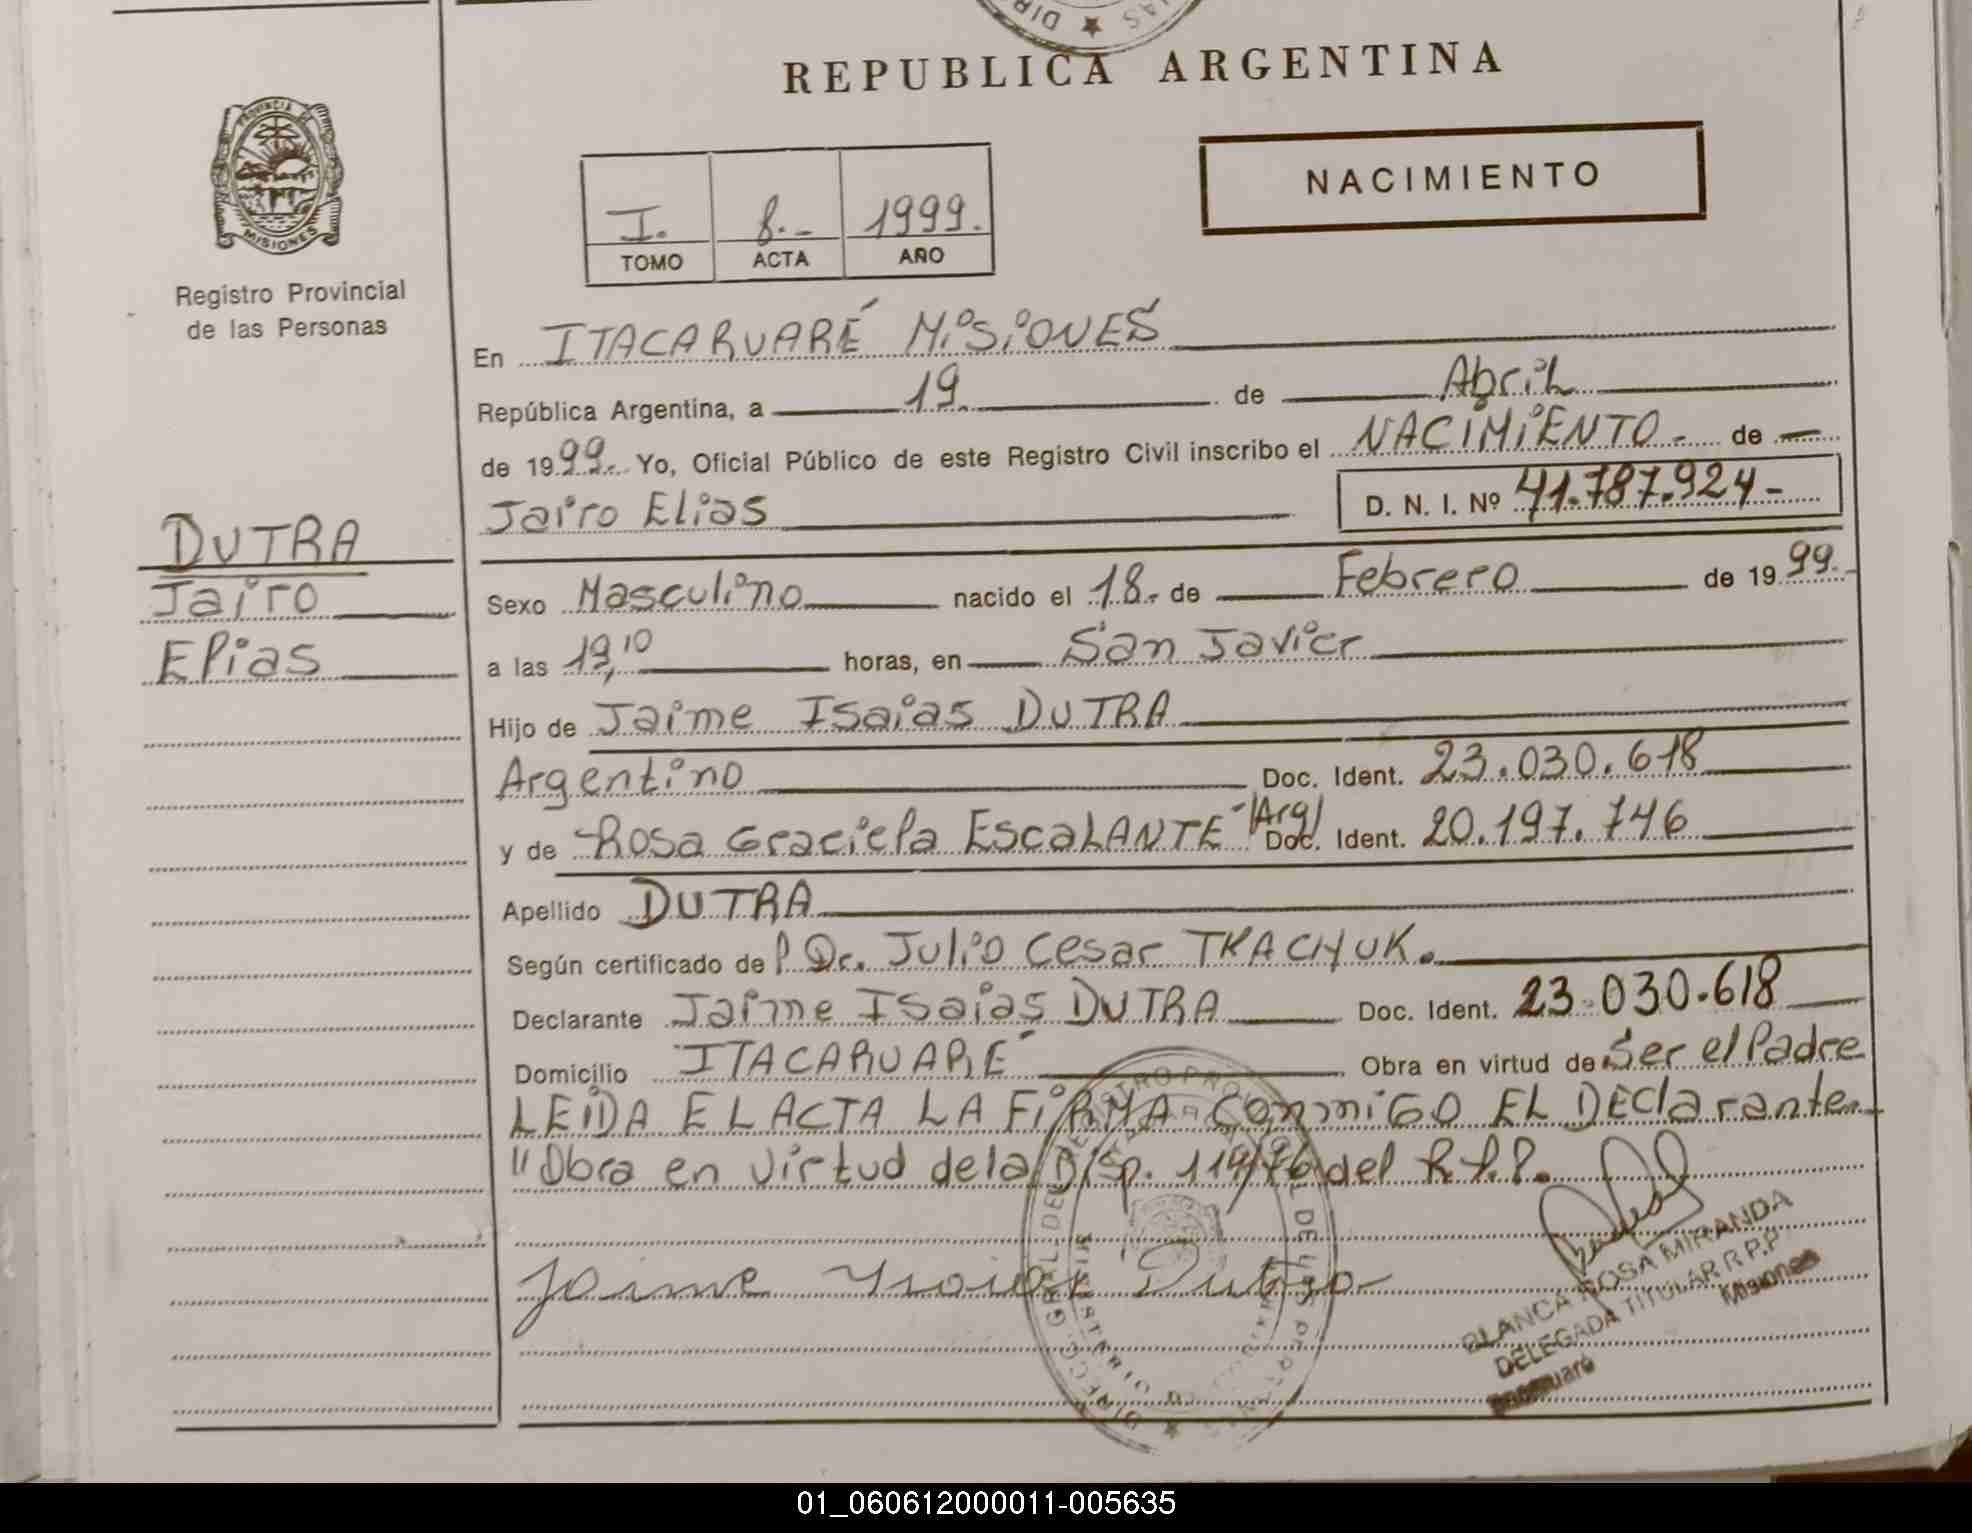 REPUBLICA ARGENTINA
PROVINCIA DE
MISIONES
Registro Provincial
de las Personas
NACIMIENTO
I. 8.- 1999.
TOMO ACTA AÑO
En ITACARUARÉ MISIONES
República Argentina, a 19. de Abril
de 1999. Yo, Oficial Público de este Registro Civil inscribo el NACIMIENTO - de
Jairo Elias D. N. I. Nº 41.787.924-
DUTRA
Jairo
Elias
Sexo Masculino nacido el 18. de Febrero de 1999.
a las 19,10 horas, en San Javier
Hijo de Jaime Isaias DUTRA
Argentino Doc. Ident. 23.030.618
y de Rosa Graciela ESCALANTE -/Arg/ Doc. Ident. 20.197.746
Apellido DUTRA
Según certificado de Dr. Julio Cesar TKACHUK.
Declarante Jaime Isaias DUTRA Doc. Ident. 23.030.618
Domicilio ITACARUARÉ Obra en virtud de Ser el Padre
LEIDA EL ACTA LA FIRMA CONMIGO EL DEClarante.
"Obra en virtud de la Disp. 114/76 del R.P.P.
Jaime Isaias Dutra
BLANCA ROSA MIRANDA
DELEGADA TITULAR R.P.P.
Misiones
01_060612000011-005635